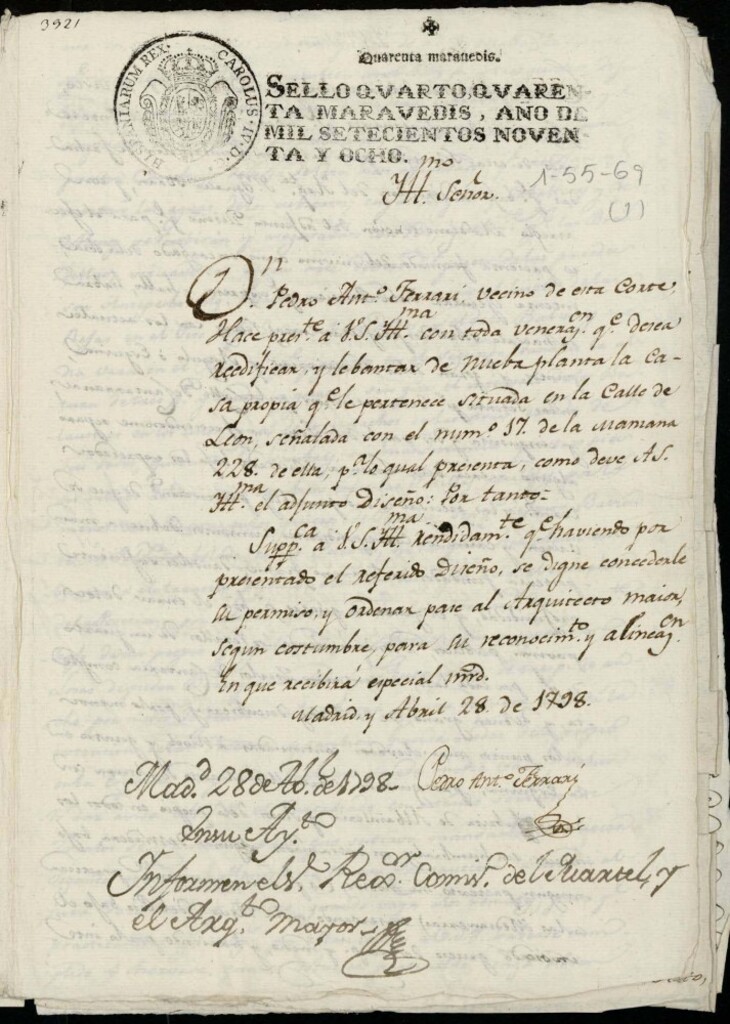 3921
HISPANIARUM REX. CAROLUS IV D. G.
Quarenta marauedis.
SELLO QVARTO, QVAREN-
TA MARAVEDIS, AÑO DE
MIL SETECIENTOS NOVEN-
TA Y OCHO.
Yll.mo Señor.
1-55-69
(1)
D.n Pedro Ant.o Ferrari, vecino de esta Corte,
Hace pres.te a V.S. Yll.ma con toda veneraz.n q.e desea
reedificar, y lebantar de nueba planta la Ca-
sa propia q.e le pertenece situada en la Calle de
Leon, señalada con el num.o 17. de la Manzana
228. de ella, p.r lo qual presenta, como deve A S.
Yll.ma el adjunto Diseño: Por tanto=
Supp.ca a V.S. Yll.ma rendidam.te q.e haviendo por
presentado el referido Diseño, se digne concederle
su permiso, y ordenar pase al Arquitecto maior,
segun costumbre, para su reconocim.to y alineaz.n
En que recibirá especial mrd.
Madrid, y Abril 28 de 1798.
Pedro Ant.o Ferrari
Mad.d 28 de Ab.l de 1798-
En su Ay.to
Informen el S.r Rex.or Comis.o del Quartel, y
el Arq.to Mayor-